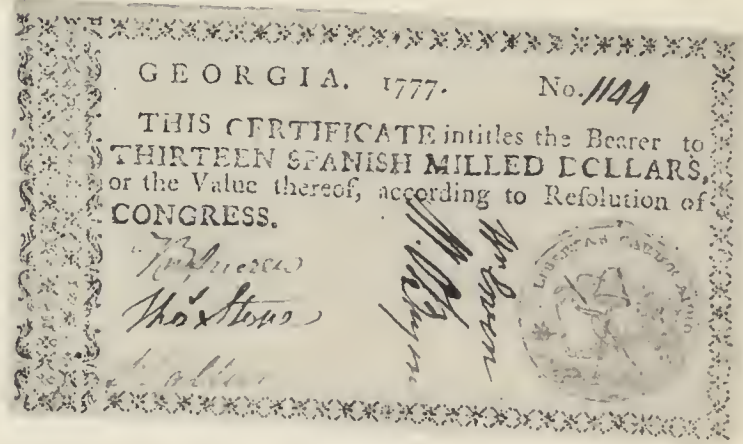 GEORGIA. 1777. No. 1144
THIS CERTIFICATE intitles the Bearer to
THIRTEEN SPANISH MILLED DOLLARS,
or the Value thereof, according to Reſolution of
CONGRESS.
Thoˢ Stone
LIBERTAS